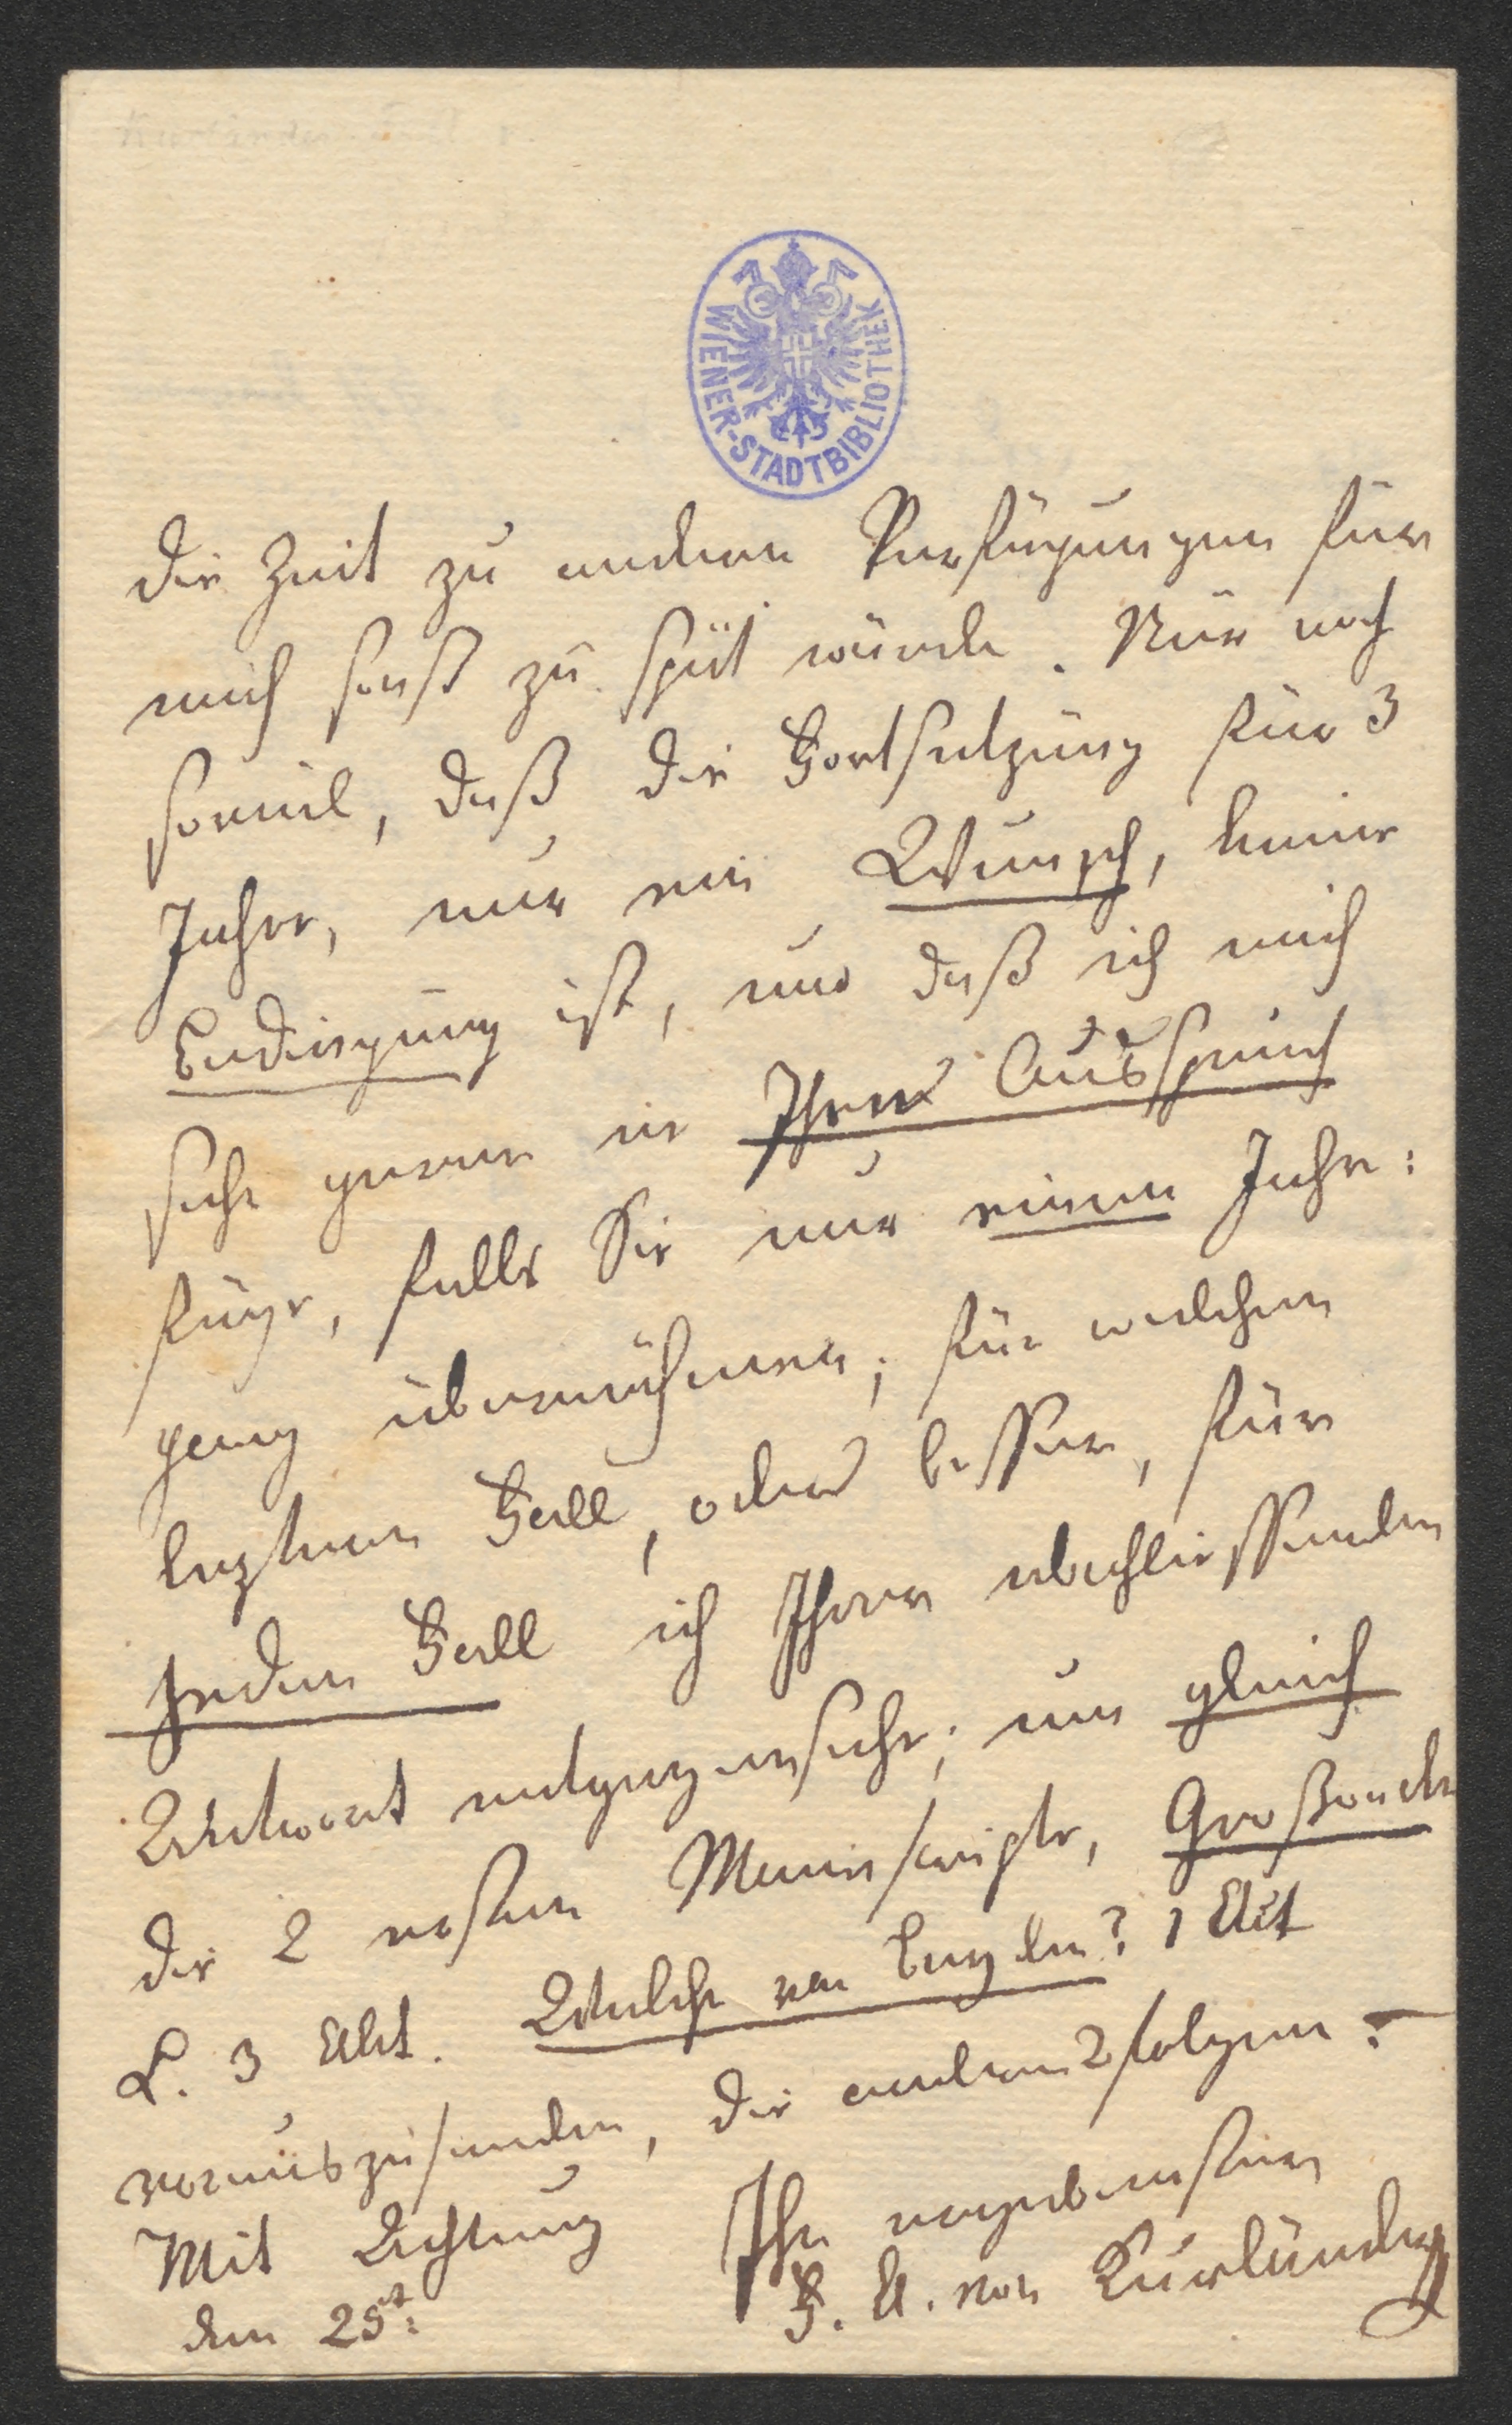 WIENER-STADTBIBLIOTHEK
die Zeit zu andern Verfügungen für
mich sonst zu spät würde. Nur noch
soviel, daß die Fortsetzung für 3
Jahre, nur ein Wunsch, keine
Bedingung ist, und daß ich mich
sehr gerne in Ihren Ausspruch
füge, falls Sie nur einen Jahr:
gang übernähmen; für welchen
lezteren Fall, oder besser, für
jeden Fall ich Ihrer abschliessenden
Antwort entgegensehe; um gleich
die 2 ersten Manuscripte,
L. 3 Akt. Welche von beyden? 1 Akt
vorauszusenden, die andern 2 folgen.
Mit Achtung Ihr ergebenster
den 25t: F. A. von Kurländer